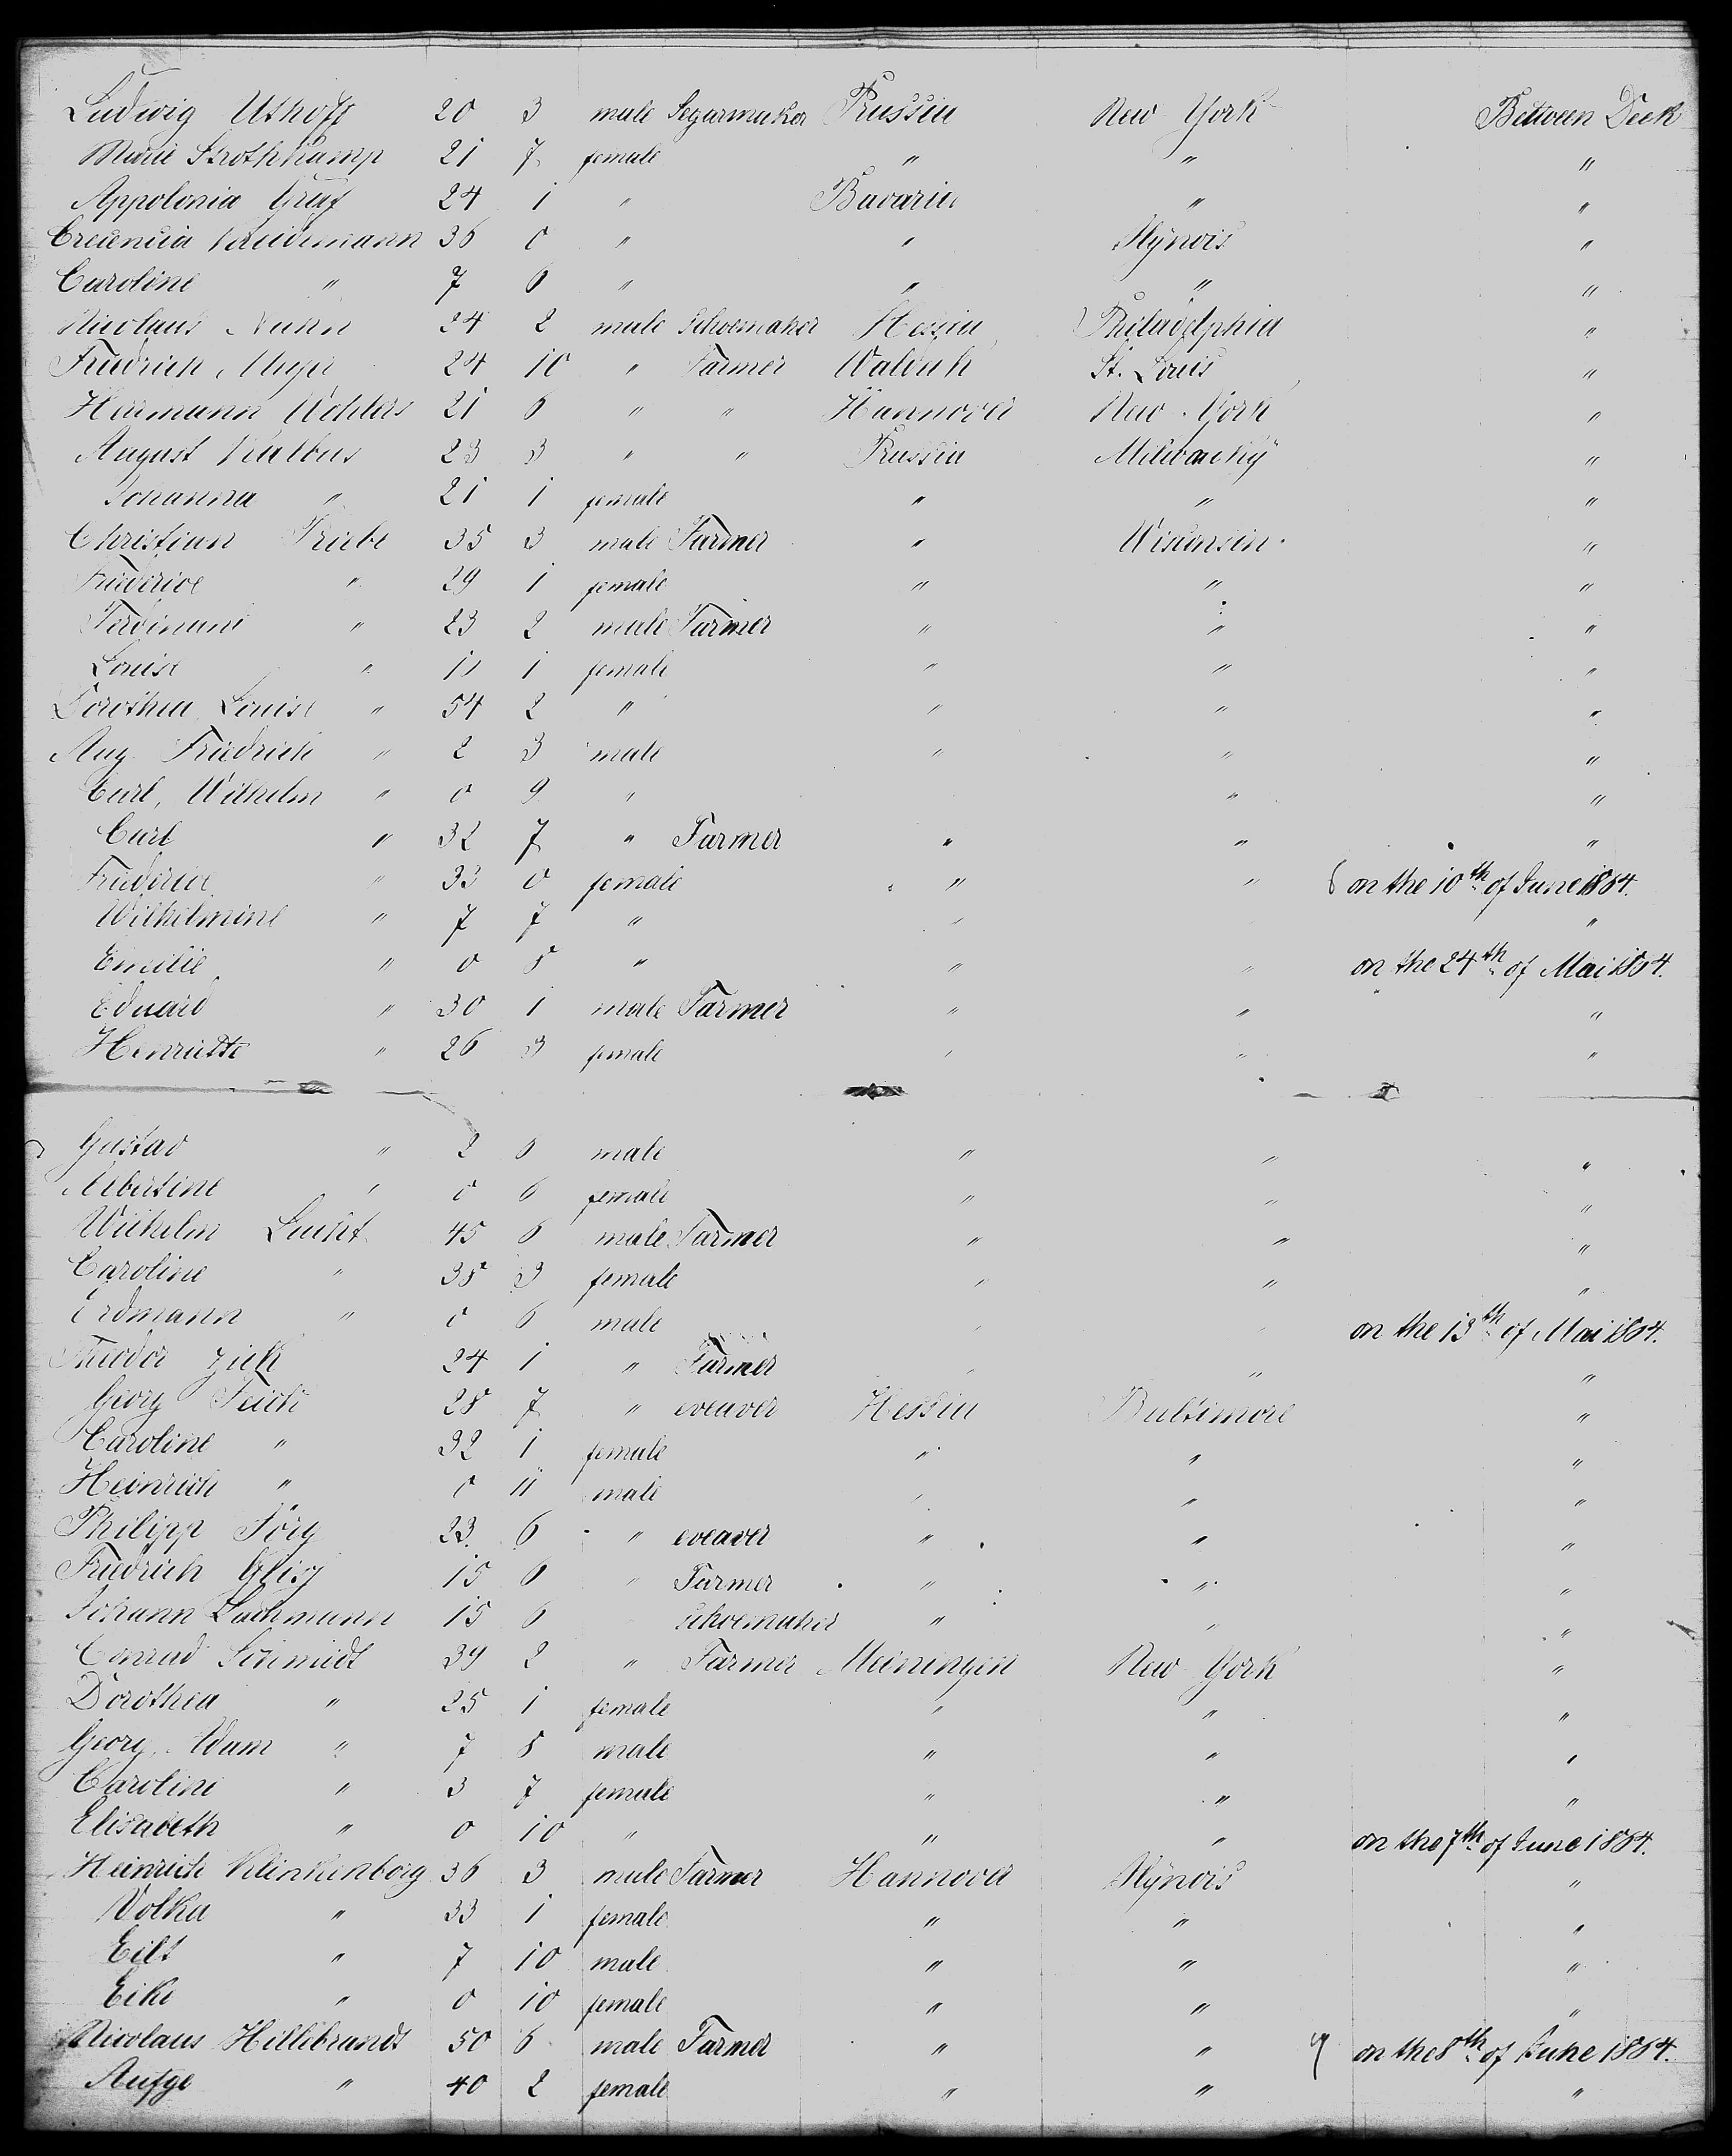 Ludwig Uthoff 20 3 male Segarmaker Prussia New York Between Deck
Marie Strothkamp 21 7 female " " "
Appolonia Graf 24 1 " Bavaria " "
Crecencia 36 0 " " Illÿnois "
Caroline " 7 6 " " " "
Nicolaus Nuhn 24 2 male Schoemaker Hessia Philadelphia "
Friedrich Meyer 24 10 " Farmer Waldek St. Louis "
Hermann Wohlers 21 6 " " Hannover New York "
August Kalbus 23 3 " " Prussia Milwaukÿ "
Johanna " 21 1 female " " "
Christian Triebe 35 3 male Farmer " Wisconsin "
Friederice " 29 1 female " " "
Ferdinand " 23 2 male Farmer " " "
Louise " 11 1 female " " "
Dorothea Louise " 54 2 " " " "
Aug. Friedrich " 2 3 male " " "
Carl, Wilhelm " 0 9 " " "
Carl " 32 7 " Farmer " " "
Friederice " 33 0 female " " on the 10th of June 1864.
Wilhelmine " 7 7 " " " "
Emilie " 0 8 " " " on the 24th of Mai 1864.
Eduard " 30 1 male Farmer " " "
Henriette " 26 3 female " " "
Gustav " 2 male " " "
Albertine " 0 6 female " " "
Wilhelm Lucht 45 6 male Farmer " " "
Caroline " 38 3 female " " "
Erdmann " 0 6 male " " on the 13th of Mai 1864.
Theodor Zielk 24 1 " Farmer " " "
Georg 28 7 " weaver Hessia Baltimore "
Caroline " 32 1 female " " "
Heinrich " 0 11 male " " "
Philipp Jörg 23 6 " weaver " " "
Friedrich 15 6 " Farmer " " "
Johann Lachmann 15 6 Schoemaker " " "
Conrad Schmidt 39 2 " Farmer Meiningen New York "
Dorothea " 25 1 female " " "
Georg, Adam " 7 8 male " " "
Caroline " 3 7 female " " "
Elisabeth " 0 10 " " " on the 7th of June 1864.
Heinrich Klinkenborg 36 3 male Farmer Hannover Illÿnois "
Volka " 33 1 female " " "
Eilt " 7 10 male " " "
Eike " 0 10 female " " "
Nicolaus Hillebrands 50 6 male Farmer " " on the 8th of June 1864.
Aufge " 40 2 female " " "